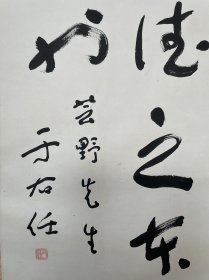 德之本
芸野先生
于右任